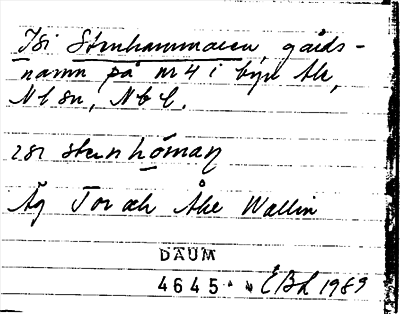 Isi Stenhammaren, gårds-
namn på nr 4 i byn Ale,
Nl sn, Nbl.
isi stenhómaŋ
Äg Tor och Åke Wallin
DAUM
4645 EBL 1989